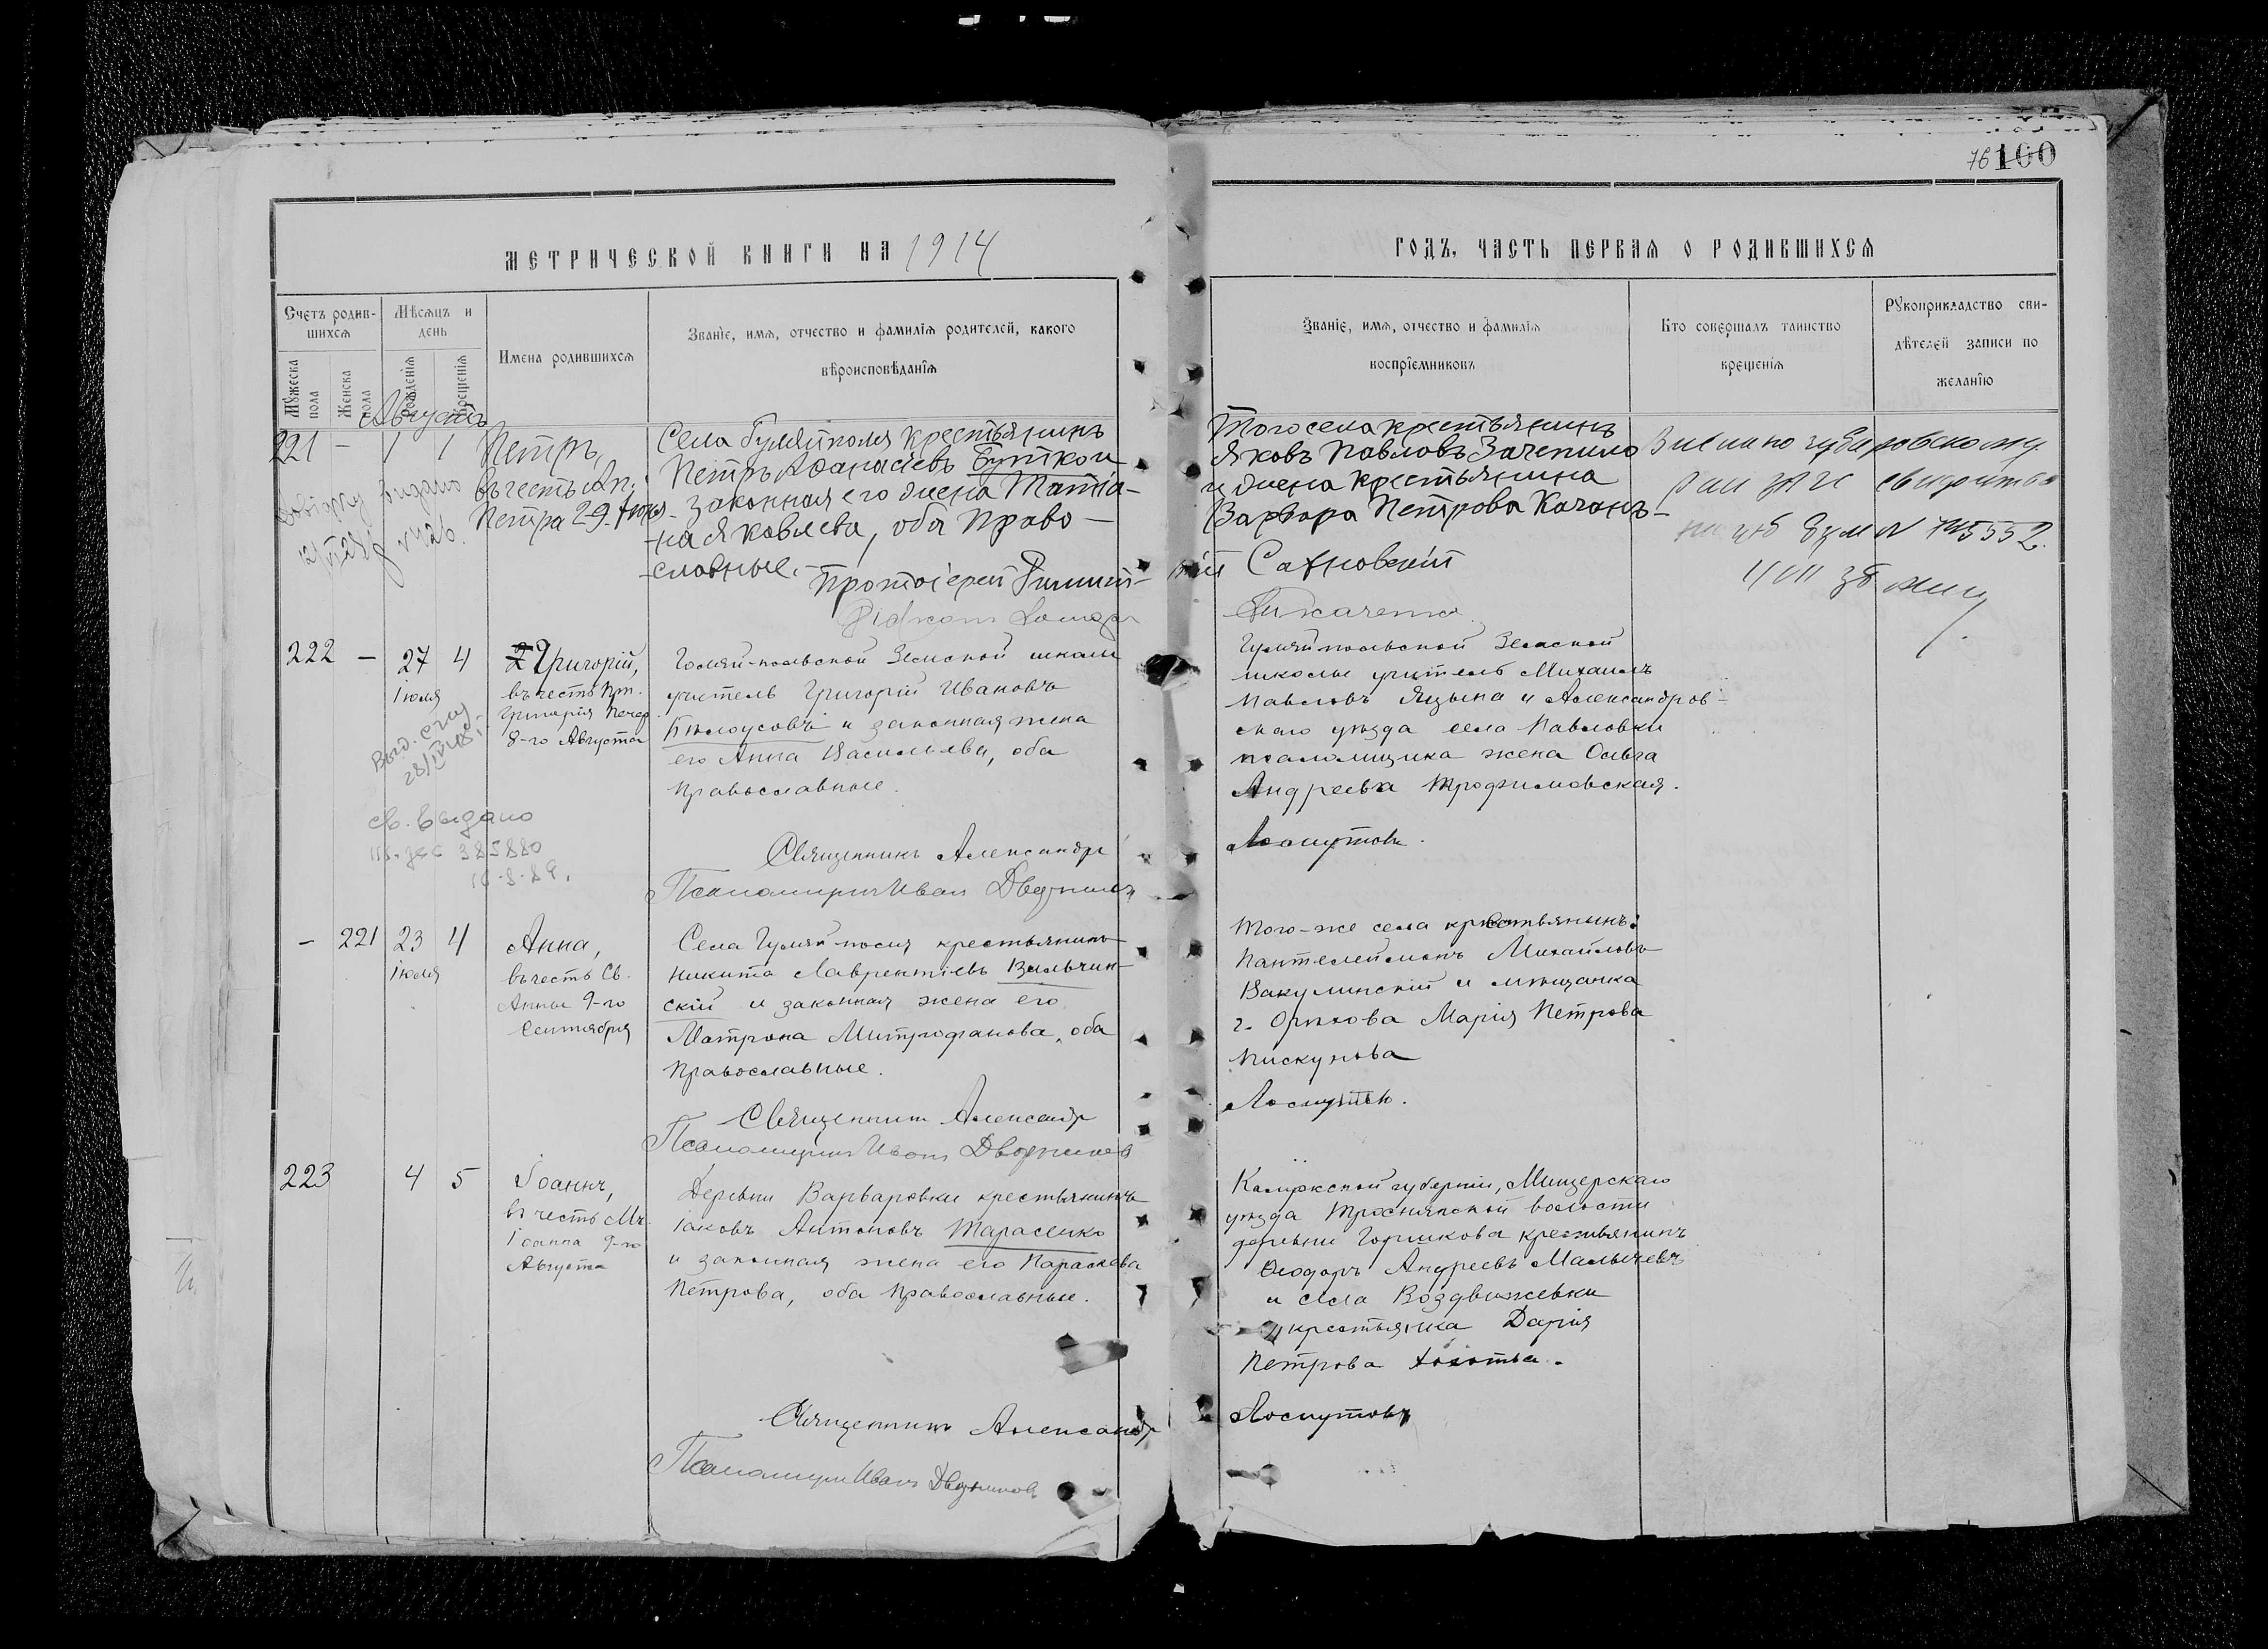 76 100
МЕТРИЧЕСКОЙ КНИГИ НА 1914
ГОДЪ, ЧАСТЬ ПЕРВАЯ О РОДИВШИХСЯ
Счетъ родив-
шихся
Мѣсяцъ и
день
Мужеска
пола
Женска
пола
Рожденія
Крещенія
Имена родившихся
Званіе, имя, отчество и фамилія родителей, какого
вѣроисповѣданія
Званіе, имя, отчество и фамилія
воспріемниковъ
Кто совершалъ таинство
крещенія
Рукоприкладство сви-
дѣтелей записи по
желанію
Августъ
221 – 1 1
Петръ,
въ честь Ап.
Петра 29 Іюня
Села Гуляйполя крестьянинъ
Петръ Аѳанасіевъ Бутко и
законная его жена Татіа-
на Яковлева, оба Право-
славные.
Протоіерей
Того села крестьянинъ
Яковъ Павловъ Зачепило
и жена крестьянина
Варвара Петрова Качанъ
Сахновскій
Ткаченко
222 – 27 4
Іюля
Григорій,
въ честь Прп.
Григорія Печер.
8-го Августа
Гуляй-польской Земской школы
учитель Григорій Ивановъ
Бѣлоусовъ и законная жена
его Анна Васильева, оба
Православные.
Св. выдано
385880
Священникъ Александръ
Псаломщикъ Иванъ Дворниковъ
Гуляйпольской Земской
школы учитель Михаилъ
Павловъ Языка и Александров-
скаго уѣзда села Павловки
псаломщика жена Ольга
Андреева Трофимовская.
Лоскутовъ.
– 221 23 4
Іюля
Анна,
въ честь Св.
Анны 9-го
Сентября
Села Гуляй-поля, крестьянинъ
Никита Лаврентіевъ Вильчин-
скій и законная жена его
Матрона Митрофанова, оба
Православные.
Священникъ Александръ
Псаломщикъ Иванъ Дворниковъ
Того-же села крестьянинъ
Пантелеймонъ Михайловъ
Вакулинскій и мѣщанка
г. Орѣхова Марія Петрова
Пискунова
Лоскутовъ.
223 4 5
Іоаннъ,
въ честь Мч.
Іоанна 9-го
Августа
Деревни Варваровки крестьянинъ
Іаковъ Антоновъ Тарасенко
и законная жена его Параскева
Петрова, оба Православные.
Священникъ Александръ
Псаломщикъ Иванъ Дворниковъ
Калужской губерніи, Мищерскаго
уѣзда волости
деревни Горшкова крестьянинъ
Ѳеодоръ Андреевъ Малычевъ
и села Воздвижевки
крестьянка Дарія
Петрова
Лоскутовъ